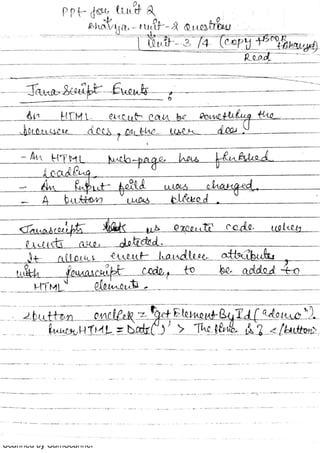 PPt for Unit 2
bhavya - unit - 2 question
Unit - 3 /4 (copy + Book
Read
Java Script Events :
An HTML event can be something the
browser does, or the user does.
- An HTML web-page has finished
loading.
- An Input feild was changed.
- A button was clicked.
Javascripts us execute code when
events are detected.
It allows event handler attributes,
with javascript code, to be added to
HTML elements.
<button onclick = 'getElementById("demo").
innerHTML = Date()' > The time is ? </button>
Scanned by CamScanner